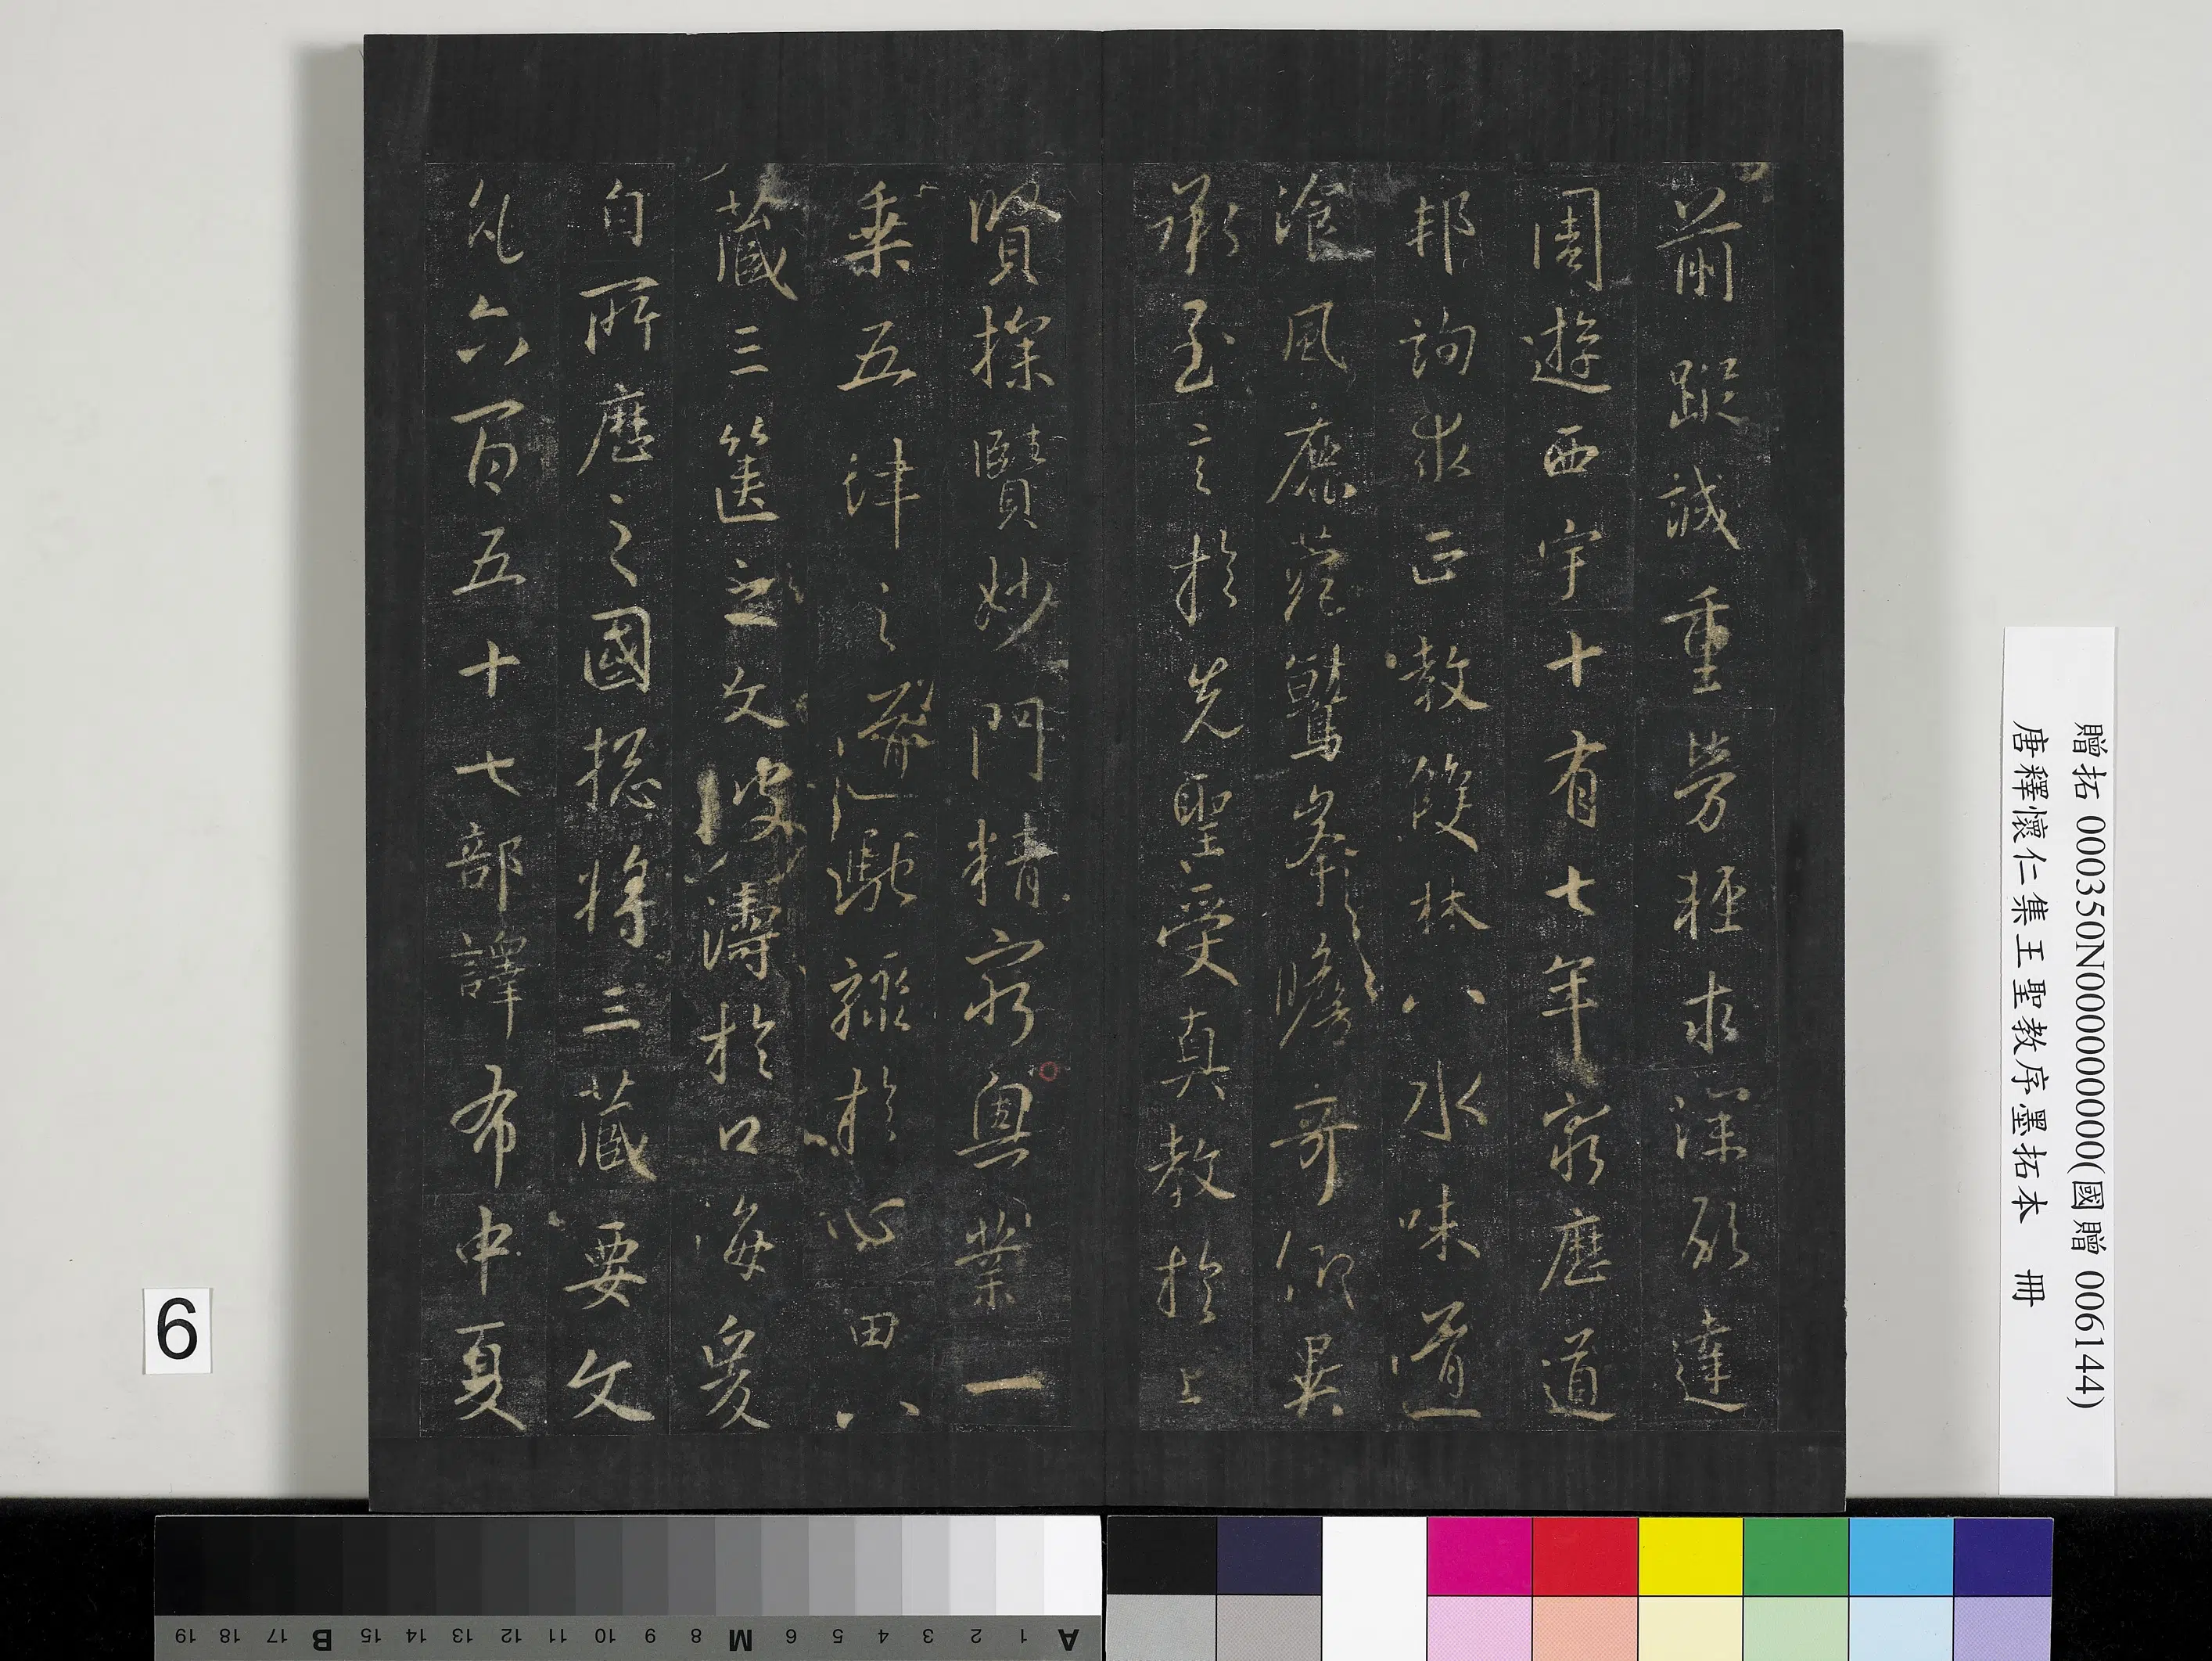 前蹤誠重勞輕求深願達
周遊西宇十有七年窮歷道
邦詢求正教雙林八水味道
飡風鹿菀鷲峯瞻奇仰異
承至言於先聖受真教於上
賢探賾妙門精窮奧業一
乘五律之道馳驟於心田八
藏三篋之文波濤於口海爰
自所歷之國揔將三藏要文
凡六百五十七部譯布中夏
贈拓 000350N000000000(國贈 006144)
唐釋懷仁集王聖教序墨拓本 冊
6
A 1 2 3 4 5 6 M 8 9 10 11 12 13 14 15 B 17 18 19